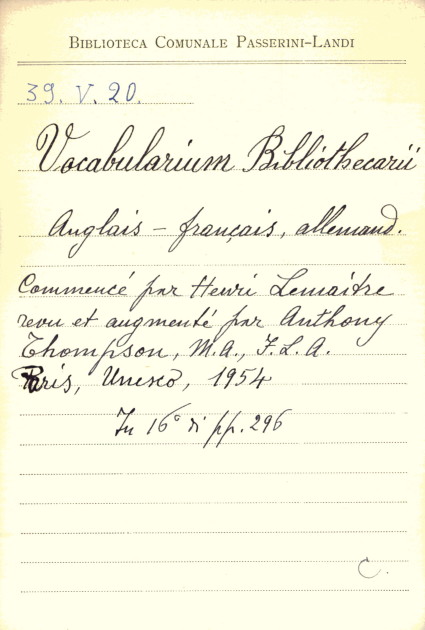 BIBLIOTECA COMUNALE PASSERINI-LANDI
39. V. 20.
Vocabularium Bibliothecarii
Anglais - français, allemand.
Commencé par Henri Lemaitre
revu et augmenté par Anthony
Thompson, M.A., F.L.A.
Paris, Unesco, 1954
In 16° di pp. 296
C.